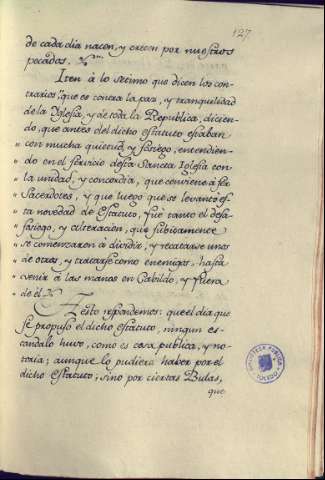 127
de cada dia nacen, y crecen por nuestros
pecados.
Iten à lo septimo que dicen los con-
trarios, que es contra la paz, y tranquilidad
de la Iglesia, y de toda la Republica, dicien-
do, que antes del dicho estatuto estaban
con mucha quietud, y sosiego, entendien-
do en el servicio desta Sancta Iglesia con
la unidad, y concordia, que conviene à ser
Sacerdotes, y que luego que se levantò es-
ta novedad de Estatuto, fuè tanto el desa-
sosiego, y alteracion, que subitamente
se comenzaron à dividir, y recatarse unos
de otros, y tratarse como enemigos, hasta
venir à las manos en Cabildo, y fuera
de èl.
A esto respondemos: que el dia que
se propuso el dicho estatuto, ningun es-
candalo huvo, como es cosa publica, y no-
toria; aunque lo pudiera haber por el
dicho Estatuto; sino por ciertas Bulas,
que
BIBLIOTECA PUBLICA
TOLEDO